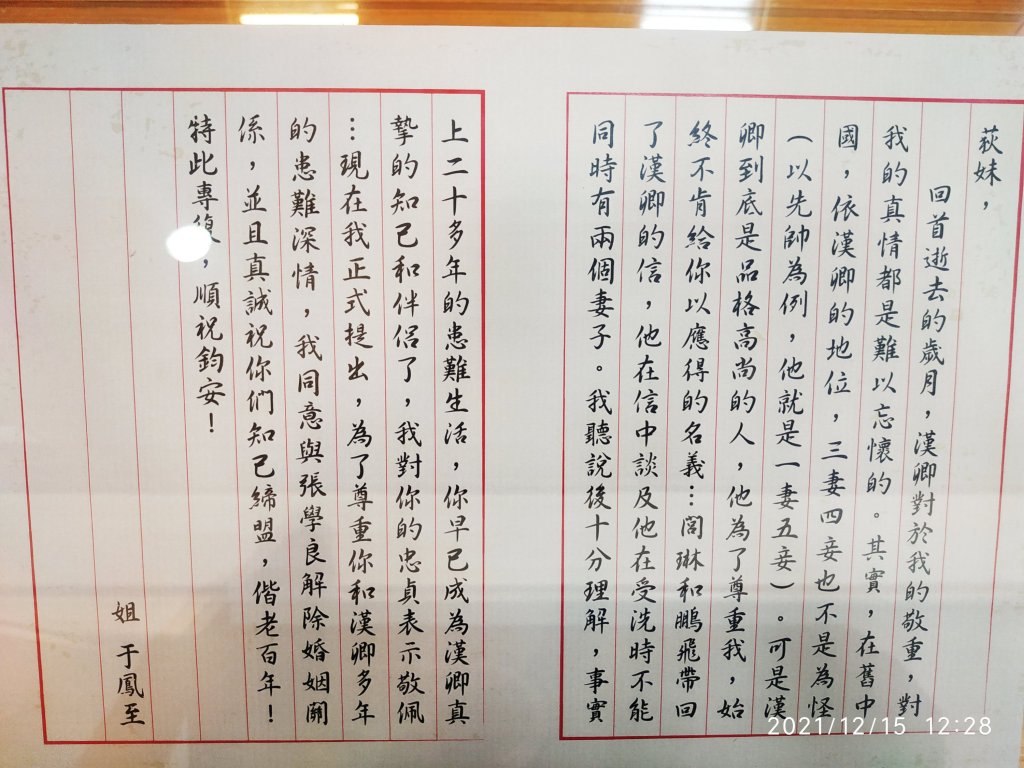 荻妹，
回首逝去的歲月，漢卿對於我的敬重，對
我的真情都是難以忘懷的。其實，在舊中
國，依漢卿的地位，三妻四妾也不是為怪
（以先帥為例，他就是一妻五妾）。可是漢
卿到底是品格高尚的人，他為了尊重我，始
終不肯給你以應得的名義…閭琳和鵬飛帶回
了漢卿的信，他在信中談及他在受洗時不能
同時有兩個妻子。我聽說後十分理解，事實
上二十多年的患難生活，你早已成為漢卿真
摯的知己和伴侶了，我對你的忠貞表示敬佩
…現在我正式提出，為了尊重你和漢卿多年
的患難深情，我同意與張學良解除婚姻關
係，並且真誠祝你們知己締盟，偕老百年！
特此專復，順祝鈞安！
姐 于鳳至
2021/12/15 12:28